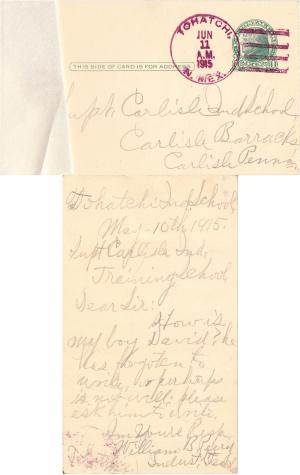 TOHATCHI,
JUN
11
A.M.
1915
N. MEX.
THIS SIDE OF CARD IS FOR ADDRESS
Supt. Carlisle Ind School
Carlisle Barracks
Carlisle Penna.
Tohatchi Ind School
May-10th 1915.
Supt Carlisle Ind,
Training School
Dear Sir:
How is
my boy David? he
has forgoten to
write, or perhaps
is not well. please
ask him to write.
I'm Yours Resp.
William
Indust